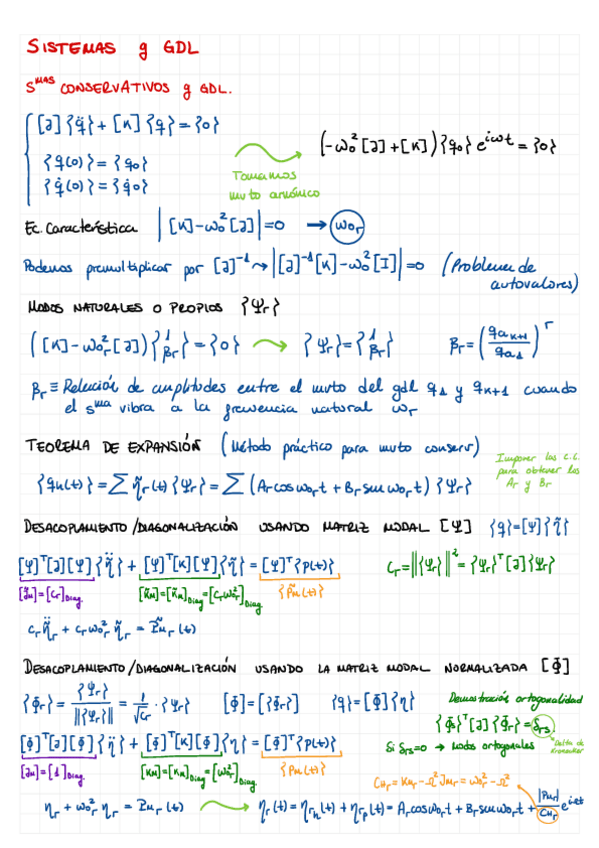 SISTEMAS g GDL
S^MAS CONSERVATIVOS g GDL.
[J]{q̈} + [K]{q} = {0}
{q(0)} = {q₀}
{q̇(0)} = {q̇₀}
Tomamos
mvto armónico
(-ω₀²[J]+[K]){q₀} e^{iωt} = {0}
Ec. Característica |[K]-ω₀²[J]| = 0 → ω₀ᵣ
Podemos premultiplicar por [J]⁻¹ ↝ |[J]⁻¹[K]-ω₀²[I]| = 0 (Problema de
autovalores)
MODOS NATURALES O PROPIOS {Ψᵣ}
([K]-ω₀ᵣ²[J]){1 βᵣ} = {0} → {Ψᵣ} = {1 βᵣ} βᵣ = (q_{aK+1}/q_{a1})^r
βᵣ ≡ Relación de amplitudes entre el mvto del gdl q₁ y q_{K+1} cuando
el s^ma vibra a la frecuencia natural ωᵣ
TEOREMA DE EXPANSIÓN (Método práctico para mvto conserv)
Imponer las C.C.
para obtener los
Ar y Br
{q_h(t)} = Σ η̃ᵣ(t){Ψᵣ} = Σ (Aᵣ cos ω₀ᵣt + Bᵣ sen ω₀ᵣt) {Ψᵣ}
DESACOPLAMIENTO/DIAGONALIZACIÓN USANDO MATRIZ MODAL [Ψ] {q}=[Ψ]{η̃}
[Ψ]ᵀ[J][Ψ]{η̃̈} + [Ψ]ᵀ[K][Ψ]{η̃} = [Ψ]ᵀ{P(t)} Cᵣ = ||{Ψᵣ}||² = {Ψᵣ}ᵀ[J]{Ψᵣ}
[J̃_M]=[Cᵣ]_Diag [K̃_M]=[K̃_M]_Diag=[Cᵣω₀ᵣ²]_Diag {P̃_M(t)}
Cᵣη̃̈ᵣ + Cᵣω₀ᵣ² η̃ᵣ = P̃_Mᵣ(t)
DESACOPLAMIENTO/DIAGONALIZACIÓN USANDO LA MATRIZ MODAL NORMALIZADA [Φ]
{Φᵣ} = {Ψᵣ}/||{Ψᵣ}|| = 1/√Cᵣ · {Ψᵣ} [Φ]=[{Φᵣ}] {q}=[Φ]{η}
Demostración ortogonalidad
{Φ_s}ᵀ[J]{Φᵣ} = δᵣₛ
Delta de
Kronecker
Si δᵣₛ=0 → Modos ortogonales
[Φ]ᵀ[J][Φ]{η̈} + [Φ]ᵀ[K][Φ]{η} = [Φ]ᵀ{P(t)}
[J_M]=[1]_Diag [K_M]=[K_M]_Diag=[ω₀ᵣ²]_Diag {P_M(t)}
C_Mᵣ = K_Mᵣ - Ω² J_Mᵣ = ω₀ᵣ² - Ω²
η̈ᵣ + ω₀ᵣ² ηᵣ = P_Mᵣ(t) → ηᵣ(t) = ηᵣₕ(t) + ηᵣₚ(t) = Aᵣ cos ω₀ᵣt + Bᵣ sen ω₀ᵣt + |P_Mᵣ|/C_Mᵣ e^{iΩt}